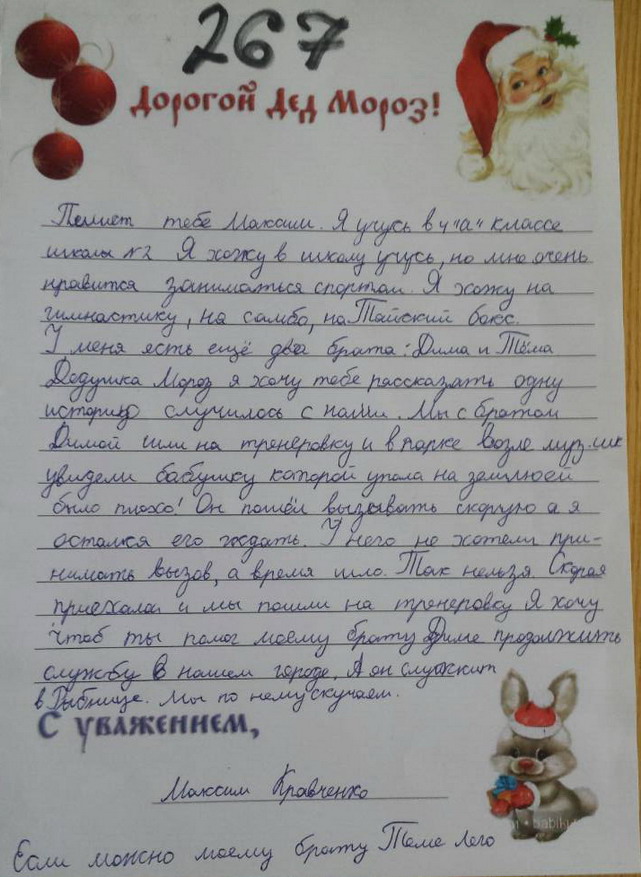 267
Дорогой Дед Мороз!
Пешиет тебе Максим. Я учусь в 4 "а" классе
школы №2 Я хожу в школу учусь, но мне очень
нравится заниматься спортом. Я хожу на
гимнастику, на самбо, на Тайский бокс.
У меня есть ещё два брата: Дима и Тёма
Дедушка Мороз я хочу тебе рассказать одну
историю случилось с нами. Мы с братом
Димой шли на тренеровку и в парке возле муз.шк
увидели бабушку которой упала на землю ей
было плохо! Он пошёл вызывать скорую а я
остался его ждать. У него не хотели при-
нимать вызов, а время шло. Так нельзя. Скорая
приехала и мы пошли на тренеровку Я хочу
чтоб ты помог моему брату Диме продолжить
службу в нашем городе. А он служит
в Рыбнице. Мы по нему скучаем.
С уважением,
Максим Кравченко
Если можно моему брату Теме Лего